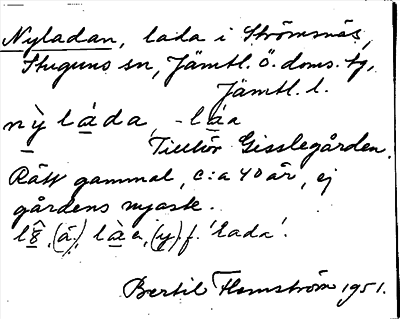 Nyladan, lada i Strömsnäs,
Stuguns sn, Jämtl. ö. doms. tg,
Jämtl. l.
nỳ láda, -láa
Tillhör Gisslegården.
Rätt gammal, c:a 40 år, ej
gårdens nyaste.
(á), làa, (y) f. 'lada'.
Bertil Flemström 1951.